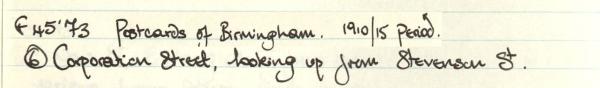 F 45'73 Postcards of Birmingham. 1910/15 Period.
⑥ Corporation Street, looking up from Stevenson St.